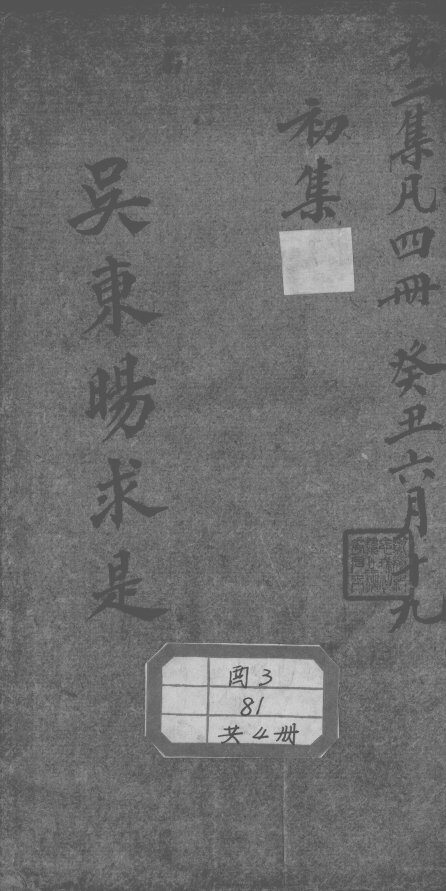 二集凡四冊 癸丑六月十九
初集
吳東暘求是
酉 3
81
共 4 册